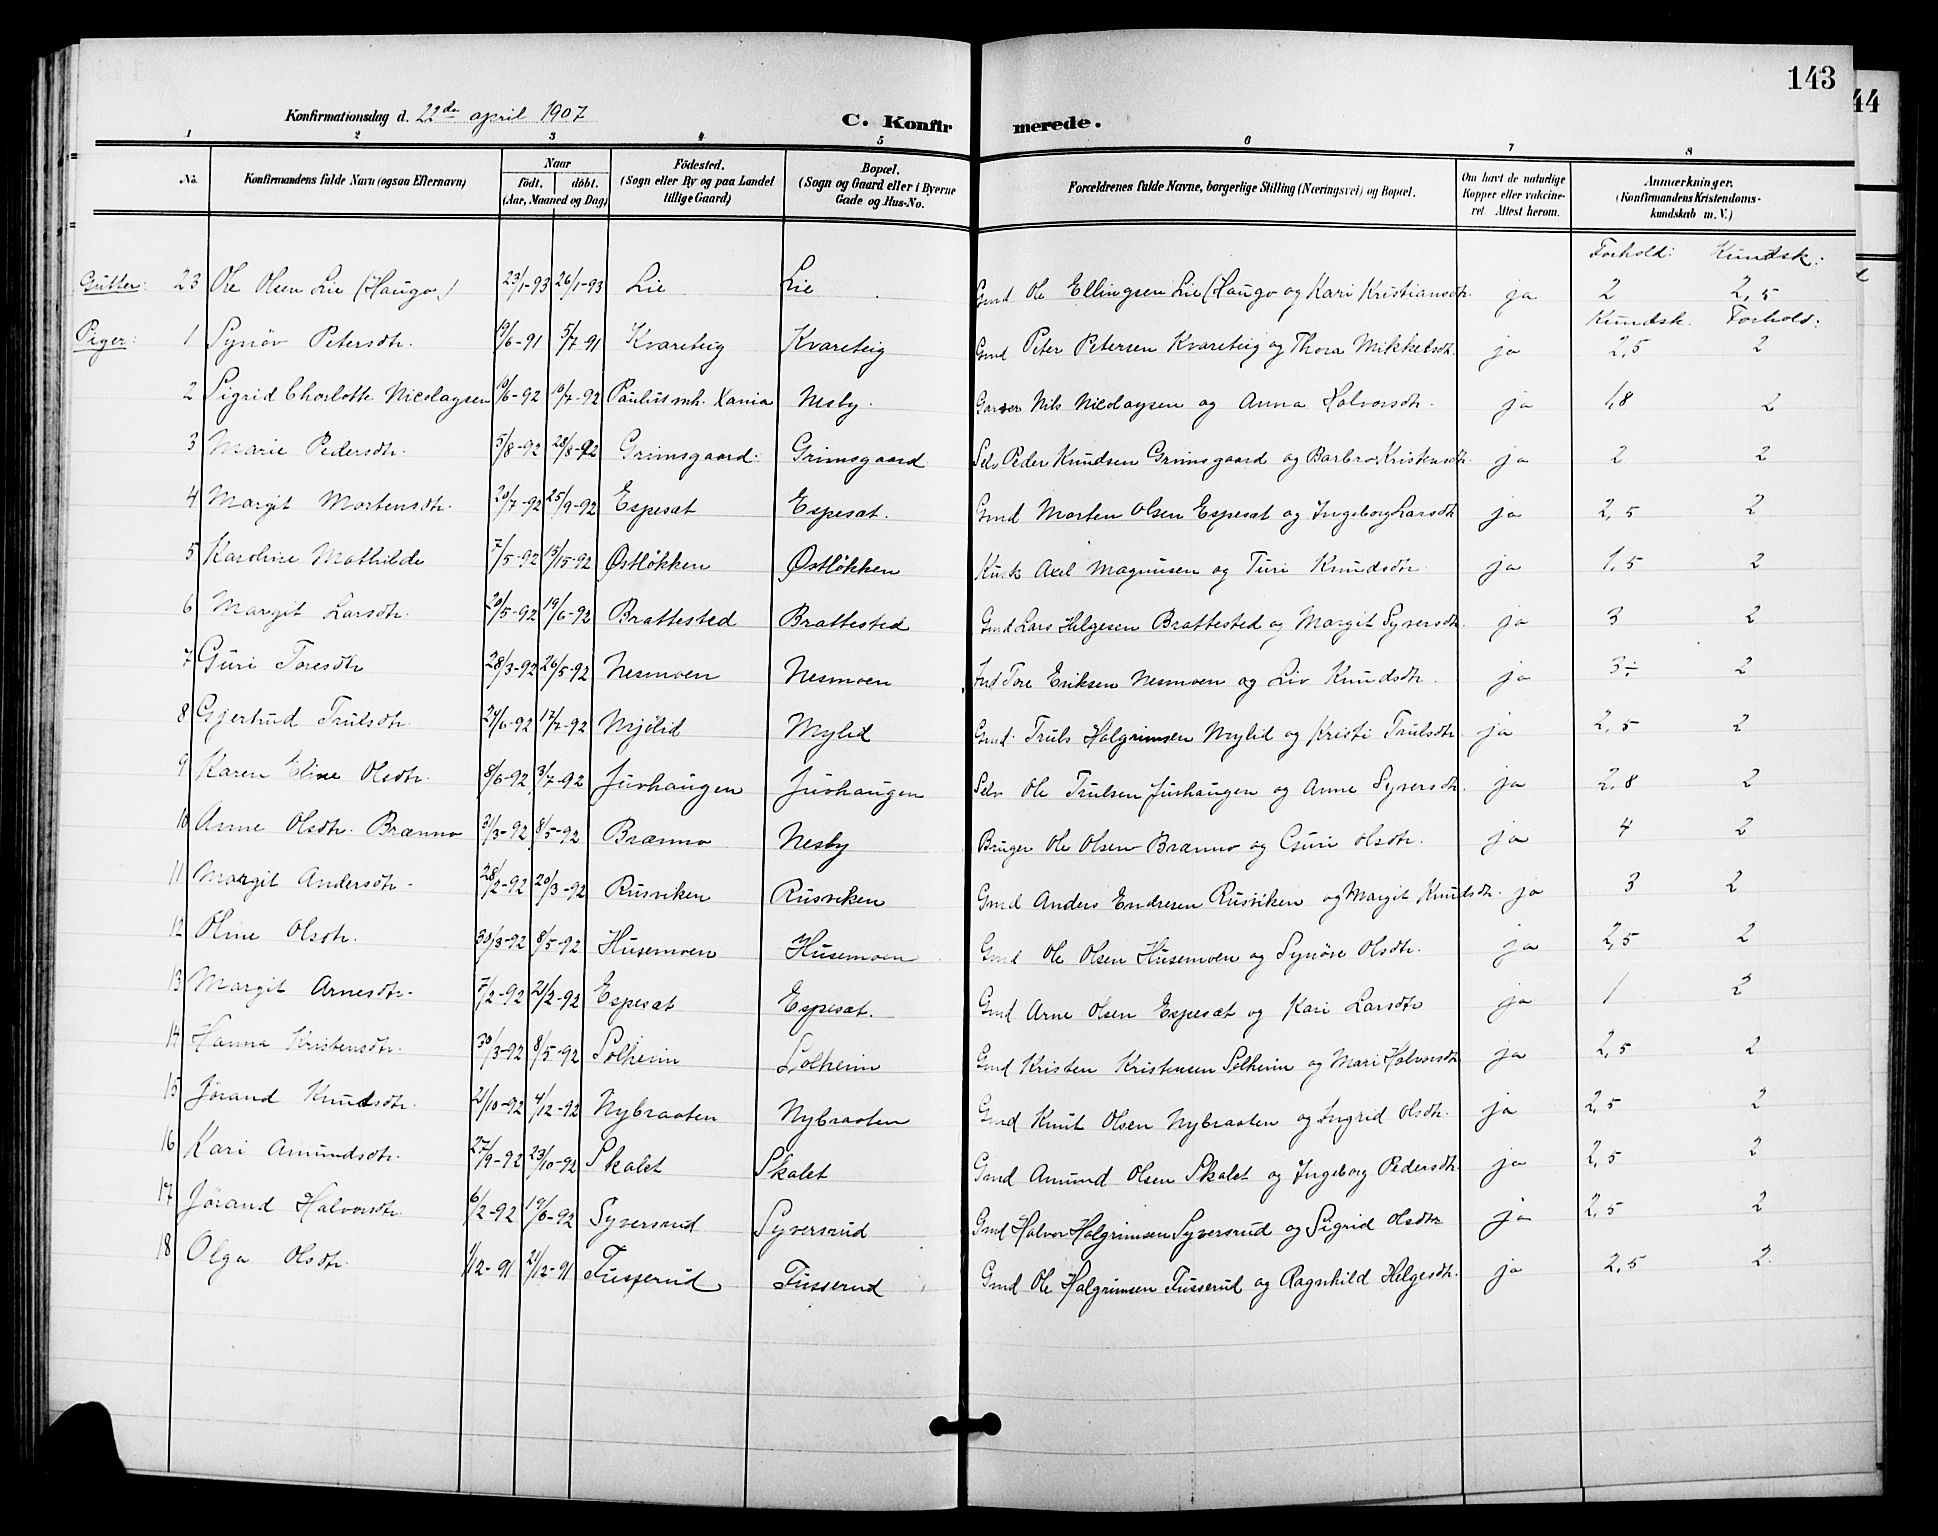 143
44
Konfirmationsdag d. 22de april 1907
C. Konfirmerede.
1 2 3 4 5 6 7 8
No. | Konfirmandens fulde Navn (ogsaa Efternavn) | Naar födt. döbt. (Aar, Maaned og Dag) | Födested. (Sogn eller By og paa Landet tillige Gaard) | Bopæl. (Sogn og Gaard eller i Byerne Gade og Hus-No. | Forældrenes fulde Navne, borgerlige Stilling (Næringsvei) og Bopæl. | Om havt de naturlige Kopper eller vakcineret Attest herom. | Anmærkninger. (Konfirmandens Kristendomskundskab m. V.)
Forhold: Kundsk:
Gutter: 23 Ole Olsen Lie (Haugo) 23/1-93 26/1-93 Lie Lie Gmd Ole Ellingsen Lie (Haugo og Kari Kristiansdtr. ja 2 2,5
Kundsk. Forhold:
Piger: 1 Synöv Petersdtr. 19/6-91 5/7-91 Kvareteig Kvareteig Gmd Peter Petersen Kvareteig og Thora Mikkelsdtr. ja 2,5 2
2 Sigrid Charlotte Nicolaysen 10/6-92 10/7-92 Paulusmh. Xania Nesby. Garver Nils Nicolaysen og Anna Halvorsdtr. ja 1,8 2
3 Marie Pedersdtr. 5/8-92 28/8-92 Grimsgaard. Grimsgaard Selv Peder Knudsen Grimsgaard og Barbro Kristensdtr. ja 2 2
4 Margit Mortensdtr. 20/7-92 25/9-92 Espesæt Espesæt. Gmd Morten Olsen Espesæt og Ingeborg Larsdtr ja 2,5 2
5 Karoline Mathilde 7/5-92 15/15-92 Østlökken Østlökken Kusk Axel Magnusen og Turi Knudsdtr. ja 1,5 2
6 Margit Larsdtr. 20/5-92 19/6-92 Brattested Brattested Gmd Lars Helgesen Brattested og Margit Syversdtr. ja 3 2
7 Guri Toresdtr 28/3-92 26/5-92 Nesmoen Nesmoen Ind Tore Eriksen Nesmoen og Liv Knudsdtr. ja 3÷ 2
8 Gjertrud Trulsdtr. 24/6-92 17/7-92 Mjölid Mylid Gmd. Truls Halgrimsen Mylid og Kristi Trulsdtr ja 2,5 2
9 Karen Eline Olsdtr. 8/6-92 3/7-92 Juvhaugen Juvhaugen Selv Ole Trulsen Juvhaugen og Anne Syversdtr. ja 2,8 2
10 Anne Olsdtr. Brænno 31/3-92 8/5-92 Brænno Nesby Bruger Ole Olsen Brænno og Guri Olsdtr. ja 4 2
11 Margit Andersdtr. 28/2-92 20/3-92 Rusviken Rusviken Gmd Anders Endresen Rusviken og Margit Knudsdtr. ja 3 2
12 Oline Olsdtr. 30/3-92 8/5-92 Husemoen Husemoen Gmd Ole Olsen Husemoen og Synöve Olsdtr. ja 2,5 2
13 Margit Arnesdtr. 7/2-92 21/2-92 Espesæt Espesæt. Gmd Arne Olsen Espesæt og Kari Larsdtr ja 1 2
14 Hanna Kristensdtr. 30/3-92 8/5-92 Solheim Solheim Gmd Kristen Kristensen Solheim og Mari Halvorsdtr ja 2,5 2
15 Jörand Knudsdtr. 21/10-92 4/12-92 Nybraaten Nybraaten Gmd Knut Olsen Nybraaten og Ingrid Olsdtr. ja 2,5 2
16 Kari Amundsdtr. 27/9-92 23/10-92 Skalet Skalet Gmd Amund Olsen Skalet og Ingeborg Pedersdtr. ja 2,5 2
17 Jörand Halvorsdtr 6/2-92 19/6-92 Syversrud Syversrud Gmd Halvor Halgrimsen Syversrud og Sigrid Olsdtr ja 2,5 2
18 Olga Olsdtr. 1/12-91 21/12-91 Tusserud Tusserud Gmd Ole Halgrimsen Tusserud og Ragnhild Helgesdtr. ja 2,5 2.